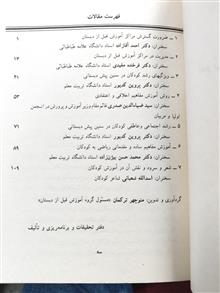 فهرست مقالات
۱ – ضرورت گسترش مراکز آموزش قبل از دبستان ۱
سخنران: دکتر احمد آقازاده استاد دانشگاه علامه طباطبائی
۲ – مدیریت در مراکز آموزش قبل از دبستان ۱۳
سخنران: دکتر فرخنده مفیدی استاد دانشگاه علامه طباطبائی
۳ – ویژگیهای رشد کودکان در سنین پیش دبستانی ۳۱
سخنران: دکتر پروین کدیور استاد دانشگاه تربیت معلم
۴ – روش آموزش مفاهیم اخلاقی و اعتقادی ۵۳
سخنران: سید ضیاءالدین صدری قائم مقام وزیر آموزش و پرورش در انجمن
اولیا و مربیان
۵ – رشد اجتماعی و عاطفی کودکان در سنین پیش دبستانی ۷۱
سخنران: دکتر پروین کدیور استاد دانشگاه تربیت معلم
۶ – آموزش مفاهیم ساده و مقدماتی ریاضی به کودکان ۸۹
سخنران: دکتر محمد حسن بیژن‌زاده استاد دانشگاه تربیت معلم
۷ – شعر و سرود و نقش آن در آموزش کودکان ۱۰۹
سخنران: اسدالله شعبانی شاعر کودکان
گردآوری و تدوین: منوچهر ترکمان «مسئول گروه آموزش قبل از دبستان»
دفتر تحقیقات و برنامه‌ریزی و تألیف